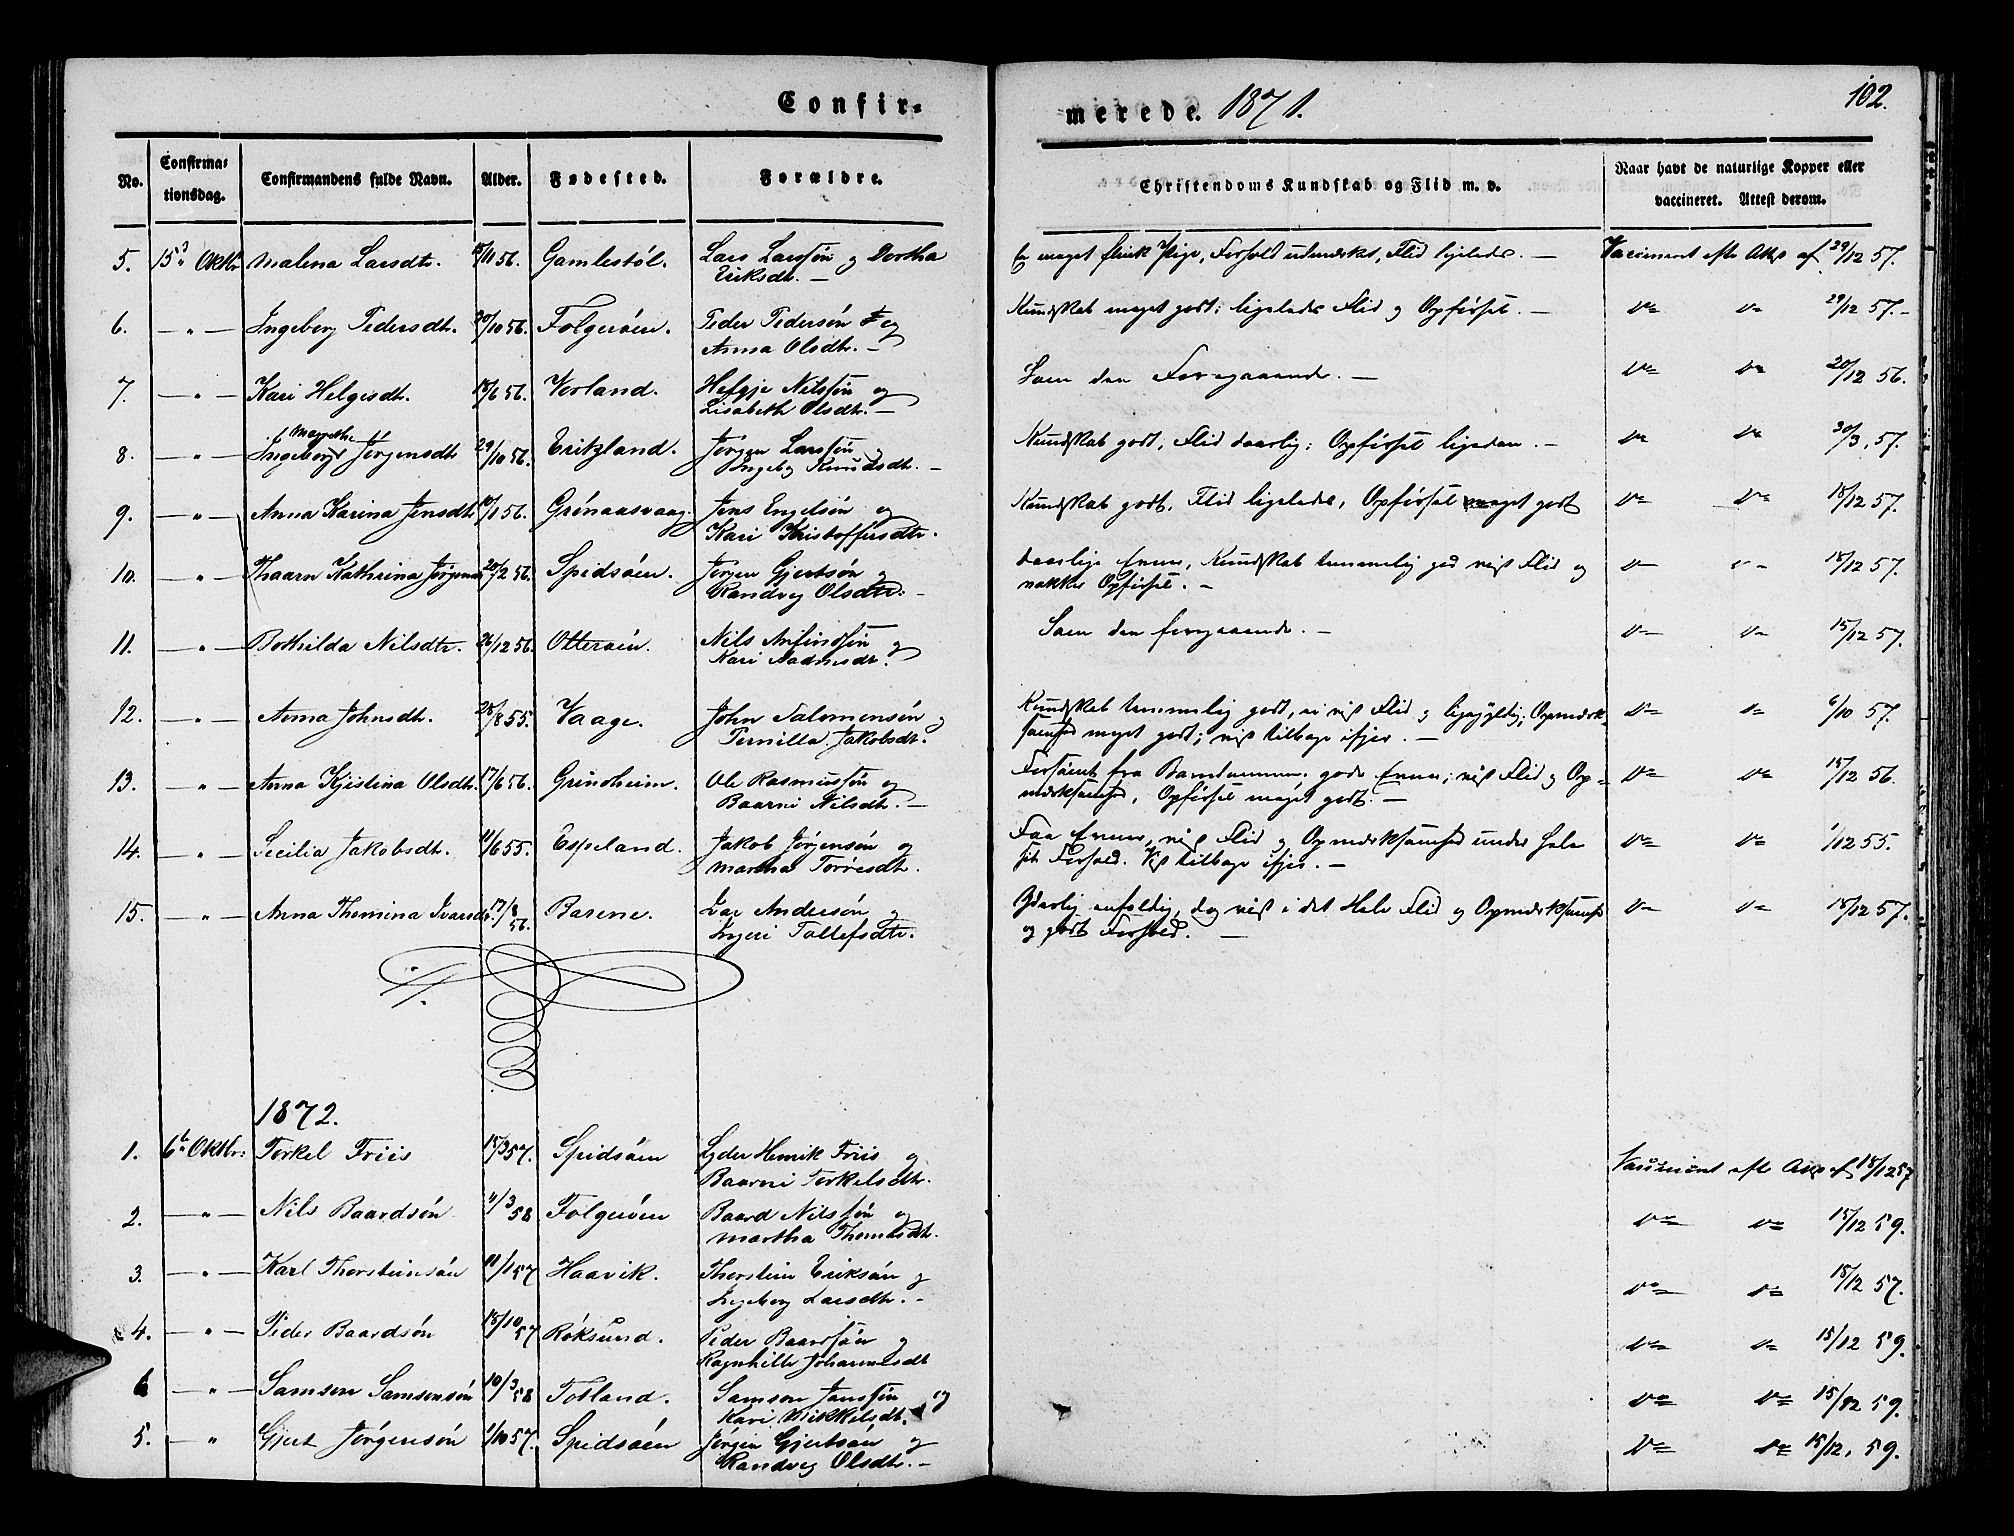 Confir-
merede. 1871.
102.
No. Confirma-tionsdag. Confirmandens fulde Navn. Alder. Fødested. Forældre. Christendoms Kundskab og Flid m. v. Naar havt de naturlige Kopper eller vaccineret. Attest derom.
5. 15d Oktbr Malena Larsdtr. 15/11 56. Gamlestøl. Lars Larssøn og Dortha Eriksdtr. — En meget flink Pige, Forhold udmærket, Flid ligeledes. — Vaccineret efter Attest af 29/12 57.
6. — " — Ingeborg Pedersdtr. 20/10 56. Folgerøen. Peder Pedersøn og Anna Olsdtr. — Kundskab meget godt; ligeledes Flid og Opførsel. — 29/12 57.
7. — " — Kari Helgesdtr. 18/6 56. Vorland. Helgje Nilssøn og Lisabeth Olsdtr. — Som den Foregaaende. — 20/12 56.
8. — " — Ingeborg Margrethe Jørgensdtr 29/10 56. Eritzland. Jørgen Larssøn og Ingebg Knudsdtr. — Kundskab godt, Flid daarlig; Opførsel ligedan. — 30/3, 57.
9. — " — Anna Karina Jensdtr 10/1 56. Grønaasvaag. Jens Engelsøn og Kari Kristoffersdtr. Kundskab godt, Flid ligeledes, Opførsel meget godt 15/12 57.
10. — " — Thaarn Kathrina Jørgensd 20/2 56. Spidsøen. Jørgen Gjertsøn og Randveg Olsdtr. — daarlige Evner, Kundskab temmelig god vist Flid og vakker Opførsel. — 15/12 57.
11. — " — Bothilda Nilsdtr. 26/12 56. Otterøen. Nils Anfindsøn og Kari Aadnesdtr. Som den foregaaende. — 15/12 57.
12. — " — Anna Johnsdtr. 28/8 55. Vaage. John Salomonsøn og Pernilla Jakobsdtr. Kundskab temmelig godt, ei vist Flid og ligegyldig; Opmærksomhed meget godt; vist tilbage ifjor. — 6/10 57.
13. — " — Anna Kjistina Olsdtr. 17/6 56. Grindheim. Ole Rasmussøn og Baarni Nilsdtr. — Forsømt fra Barndommen, gode Evner; vist Flid og Opmærksomhed, Opførsel meget godt. — 15/12 56.
14. — " — Secilia Jakobsdtr. 11/6 55. Espeland. Jakob Jørgensøn og Martha Torresdtr. Faa Evner, vist Flid og Opmærksomhed under hele sit Forhold. Vist tilbage ifjor. — 1/12 55.
15. — " — Anna Thomina Ivarsdtr. 17/8 56. Barene. Ivar Andersøn og Ingeri Tollefsdtr. Yderlig enfoldig, dog vist i det Hele Flid og Opmærksomhed og godt Forhold. — 15/12 57.
1872.
1. 6te Oktbr: Torkel Friis 15/3 57. Spidsøen Lyder Henrik Friis og Baarni Torkelsdtr. Vaccineret efter Attest af 15/12 57
2. — " — Nils Baardsøn 11/3 58 Folgerøen Baard Nilssøn og Martha Thomasdtr. 15/12 59.
3. — " — Karl Thorsteinsøn 11/1 57 Haavik. Thorstein Eriksøn og Ingeborg Larsdtr. — 15/12 57.
4. — " — Peder Baardsøn 15/10 57 Røksund. Peder Baardsøn og Ragnhille Johannesdt 15/12 59.
6 — " — Samson Samsonsøn 10/3 58 Totland. Samson Janssøn og Kari Mikkelsdtr. 15/12 59.
5. — " Gjert Jørgensøn 1/10 57. Spidsøen Jørgen Gjertsøn og Randveg Olsdtr. — 15/12, 59.